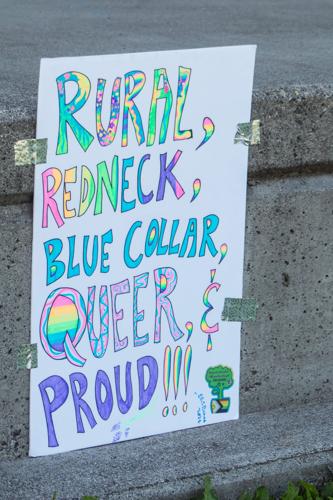 RURAL,
REDNECK,
BLUE COLLAR,
QUEER, &
PROUD!!!